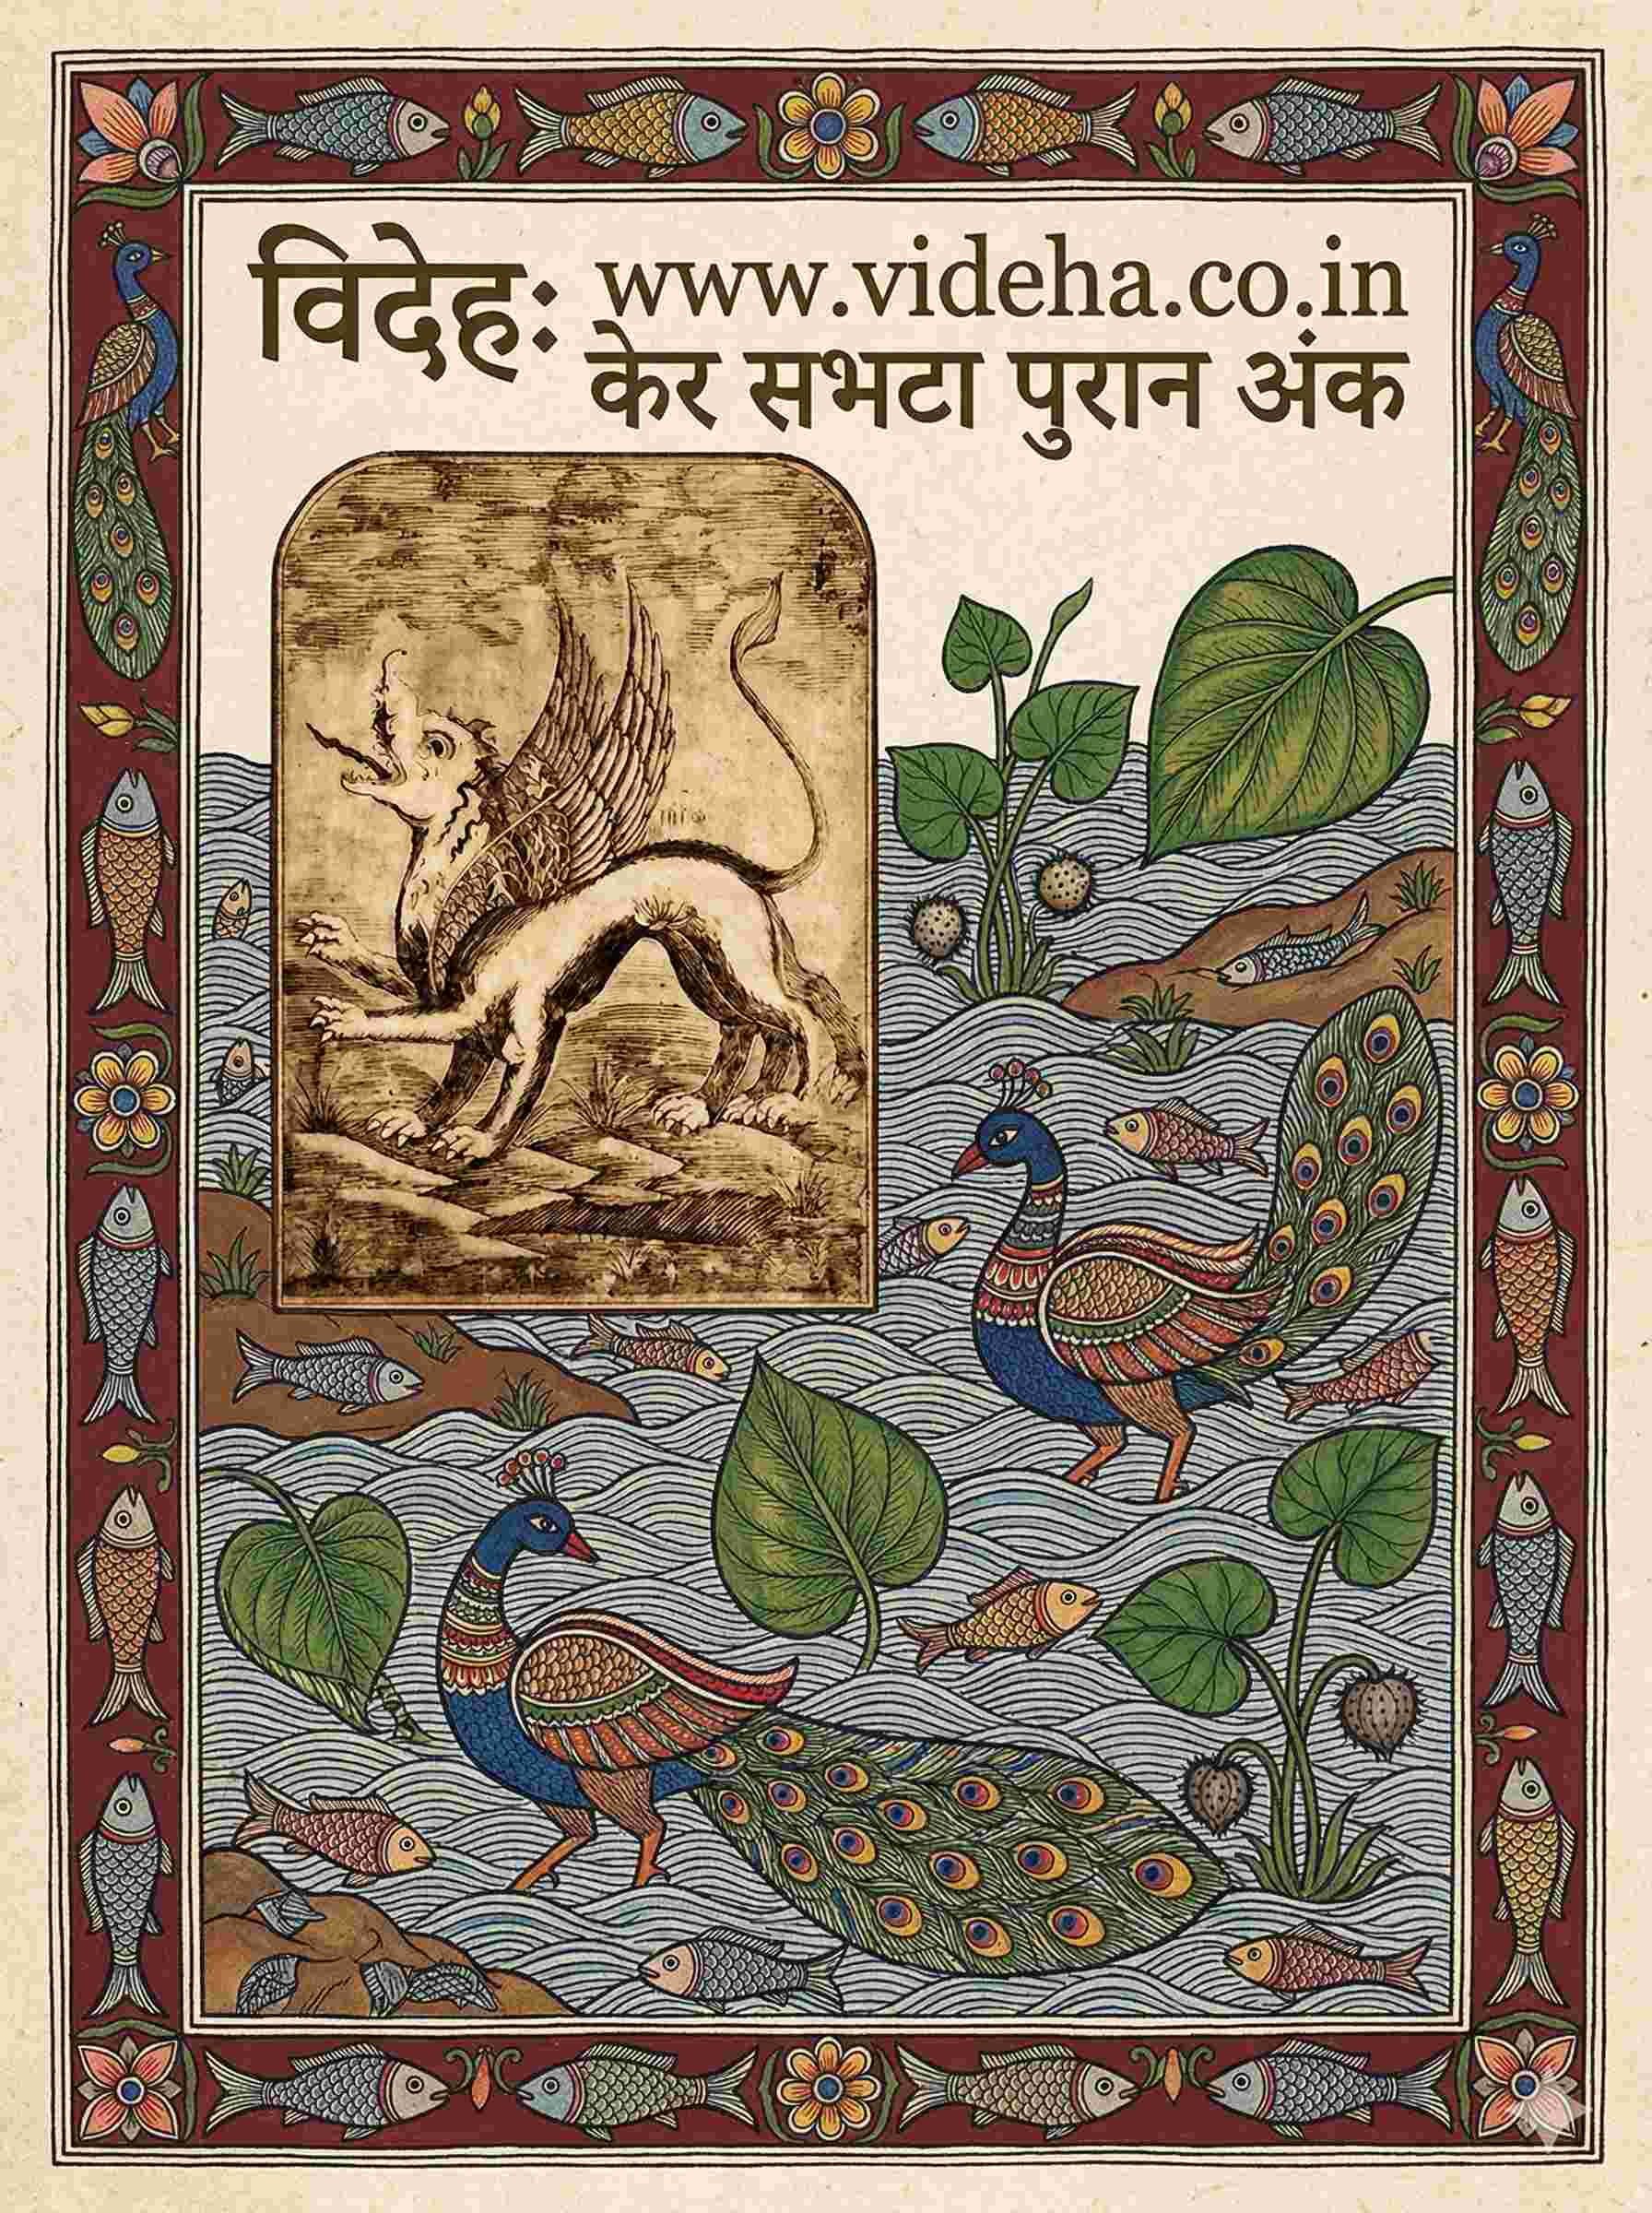 विदेहः www.videha.co.in
केर सभटा पुरान अंक